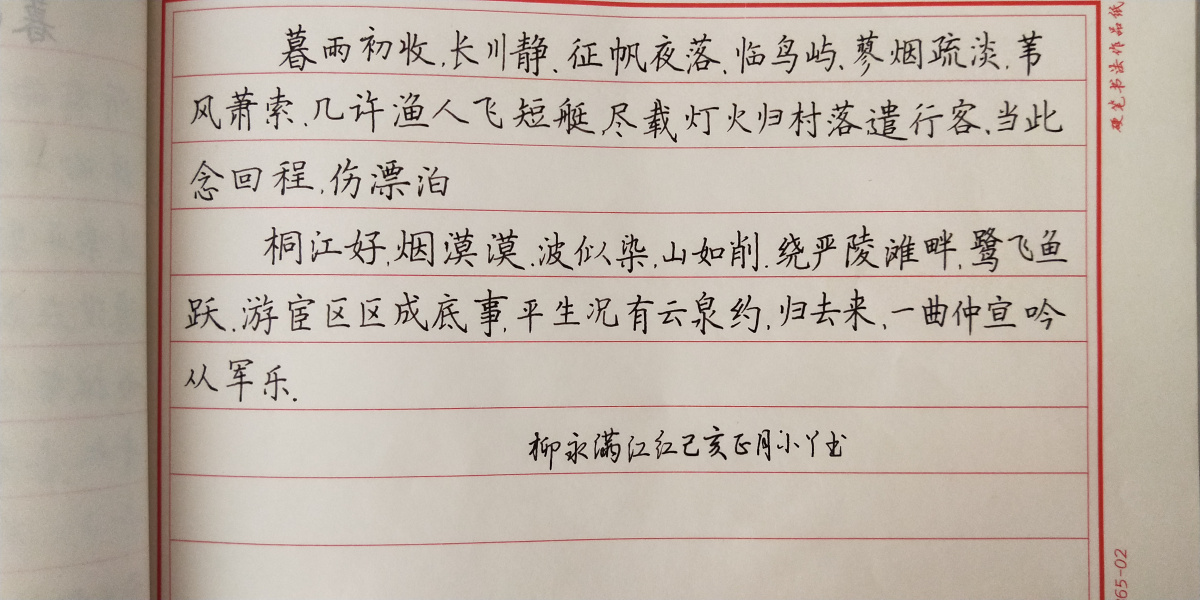 暮雨初收.长川静.征帆夜落.临鸟屿.蓼烟疏淡.苇
风萧索.几许渔人飞短艇.尽载灯火归村落遣行客.当此
念回程.伤漂泊
桐江好.烟漠漠.波似染.山如削.绕严陵滩畔.鹭飞鱼
跃.游宦区区成底事.平生况有云泉约.归去来.一曲仲宣吟
从军乐.
柳永满江红己亥正月小丫书
硬笔书法作品纸
65-02